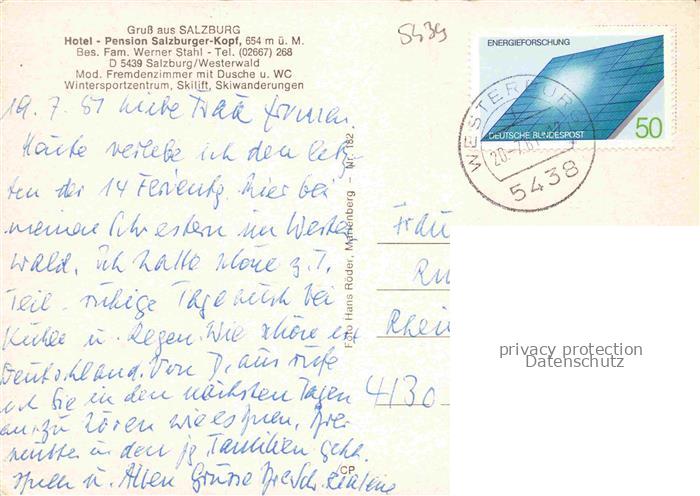 Gruß aus SALZBURG
Hotel - Pension Salzburger-Kopf, 654 m ü. M.
Bes. Fam. Werner Stahl - Tel. (02667) 268
D 5439 Salzburg/Westerwald
Mod. Fremdenzimmer mit Dusche u. WC
Wintersportzentrum, Skilift, Skiwanderungen
5439
ENERGIEFORSCHUNG
DEUTSCHE BUNDESPOST
50
WESTERBURG
20.-7.81
5438
19. 7. 81 Liebe Frau
Heute verlebe ich den letz-
ten der 14 Ferientg. hier bei
meinen Schwestern im Wester
wald. Ich hatte schöne z. T.
Teil - ruhige Tage auch bei
Kühle u. Regen. Wie schön ist
Deutschland. Von D. aus rufe
ich Sie in den nächsten Tagen
an zu hören wie es Ihnen,
in den Familien geht.
u. Allen Grüsse
Foto Hans Röder, Marienberg - Nr. 182
CP
Frau
Rhein
4130
privacy protection
Datenschutz